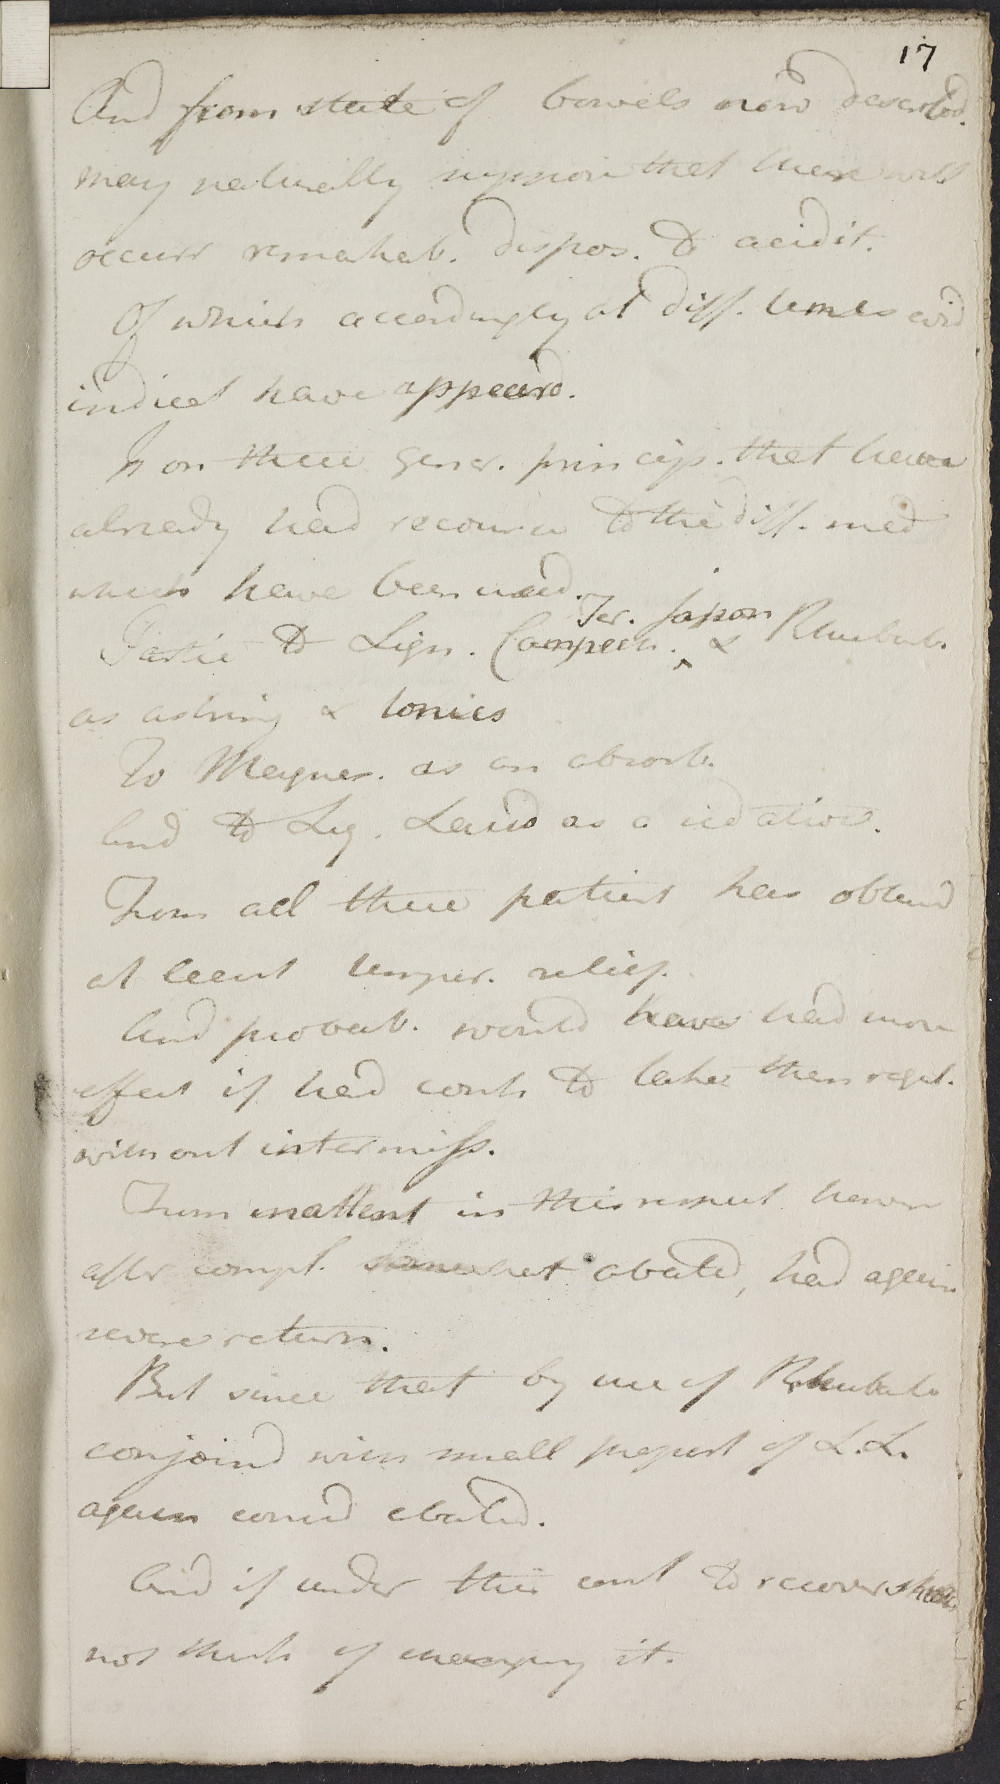 17
And from state of bowels now describd.
may naturally suppose that there will
occurr remarkab. dispos. to acidit.
Of which accordingly at diff. times evid
indicat have appeard.
Is on these gener. princip. that have
already had recourse to the diff. med
which have been used.
to Lign. Campech. Ter. Japon & Rhubarb.
as astring & tonics
To Magnes. as an absorb.
And to Liq. Laud as a sedative.
From all these patient has obtaind
at least temper. relief.
And probab. would have had more
effect if had cont to take them regul.
without intermiss.
From inattent in this respect howev
after compl. somewhat abated, had again
severe return.
But since that by use of Rhubarb
conjoind with small proport of L.L.
again consid abated.
And if under this cont to recover shall
not think of changing it.